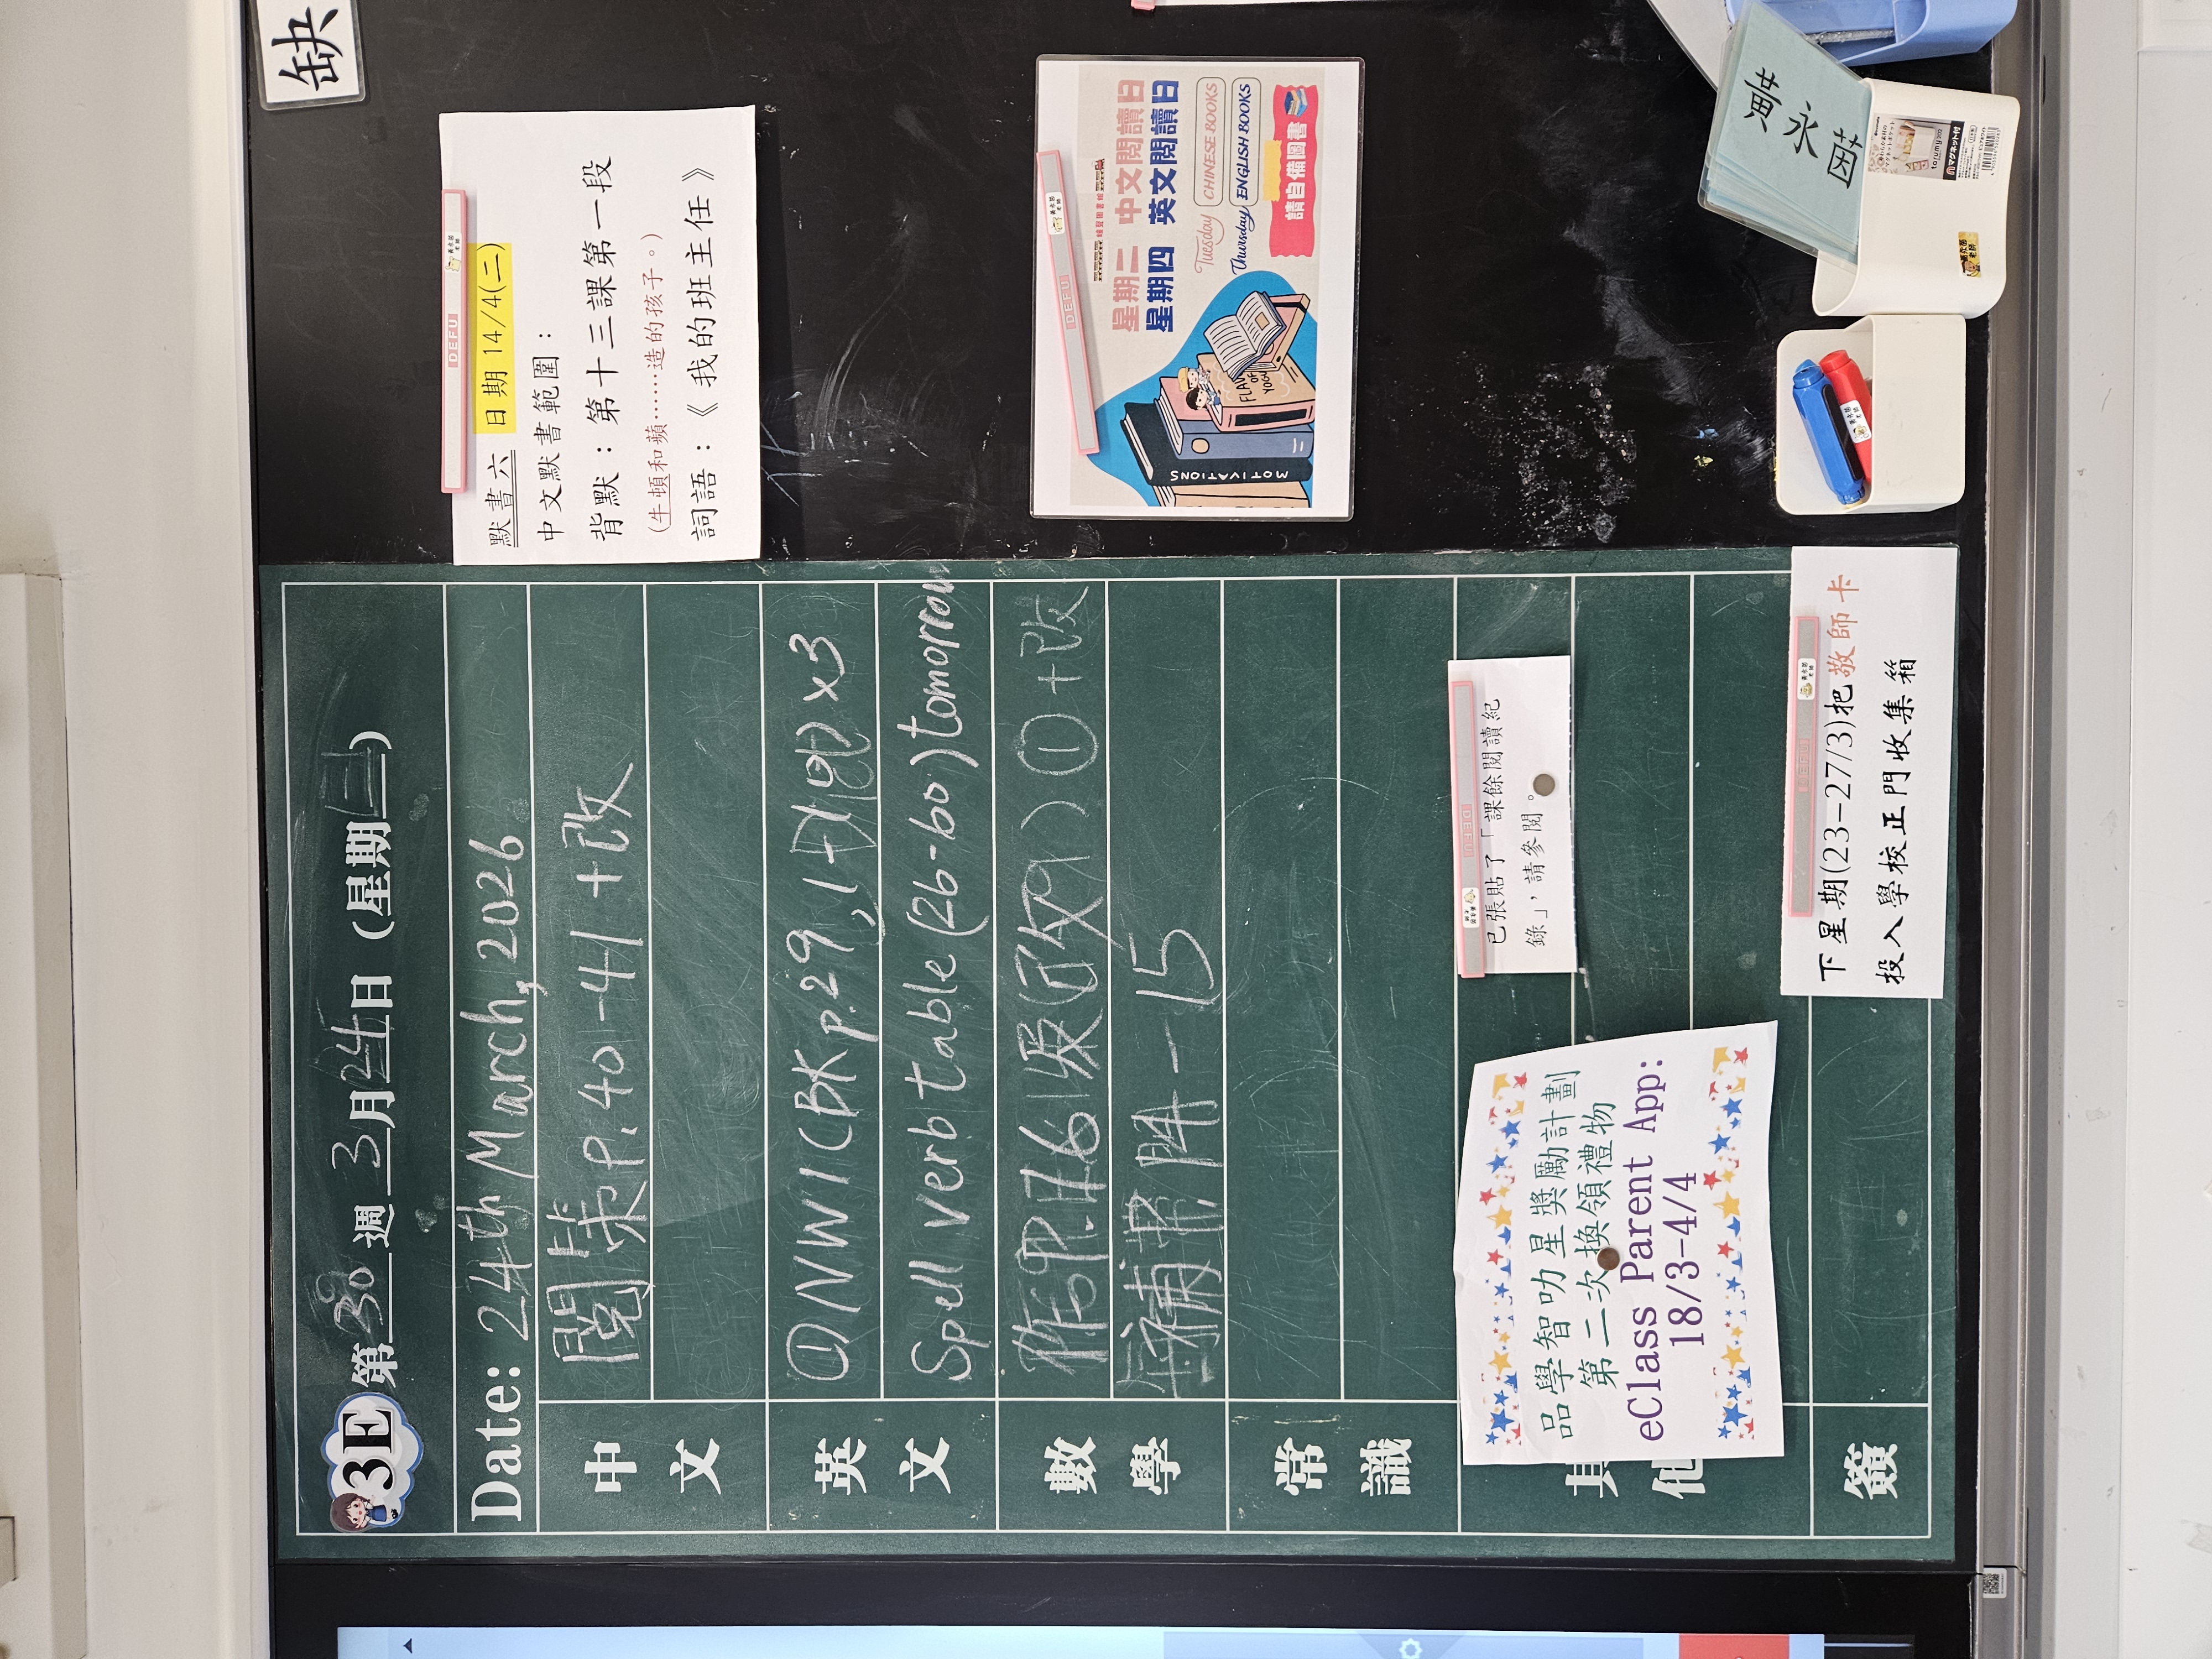 3E 第30週 3月24日 (星期二)
Date: 24th March, 2026
中文
閱柴P.40-41+改
英文
① NW1(BK p.29)
x3
Spell verb table (26-60) tomorrow
數學
① +改
-15
常識
其他
品學智叻星獎勵計劃
第二次換領禮物
eClass Parent App:
18/3-4/4
已張貼了「課餘閱讀紀
錄」,請參閱。
簽
下星期(23-27/3)把敬師卡
投入學校正門收集箱
缺
DEFU
默書六 日期14/4(二)
中文默書範圍:
背默:第十三課第一段
(牛頓和蘋……造的孩子。)
詞語:《我的班主任》
DEFU
星期二 中文閱讀日
星期四 英文閱讀日
Tuesday CHINESE BOOKS
Thursday ENGLISH BOOKS
請自備圖書
MOTIVATIONS
黃永茵
torumy